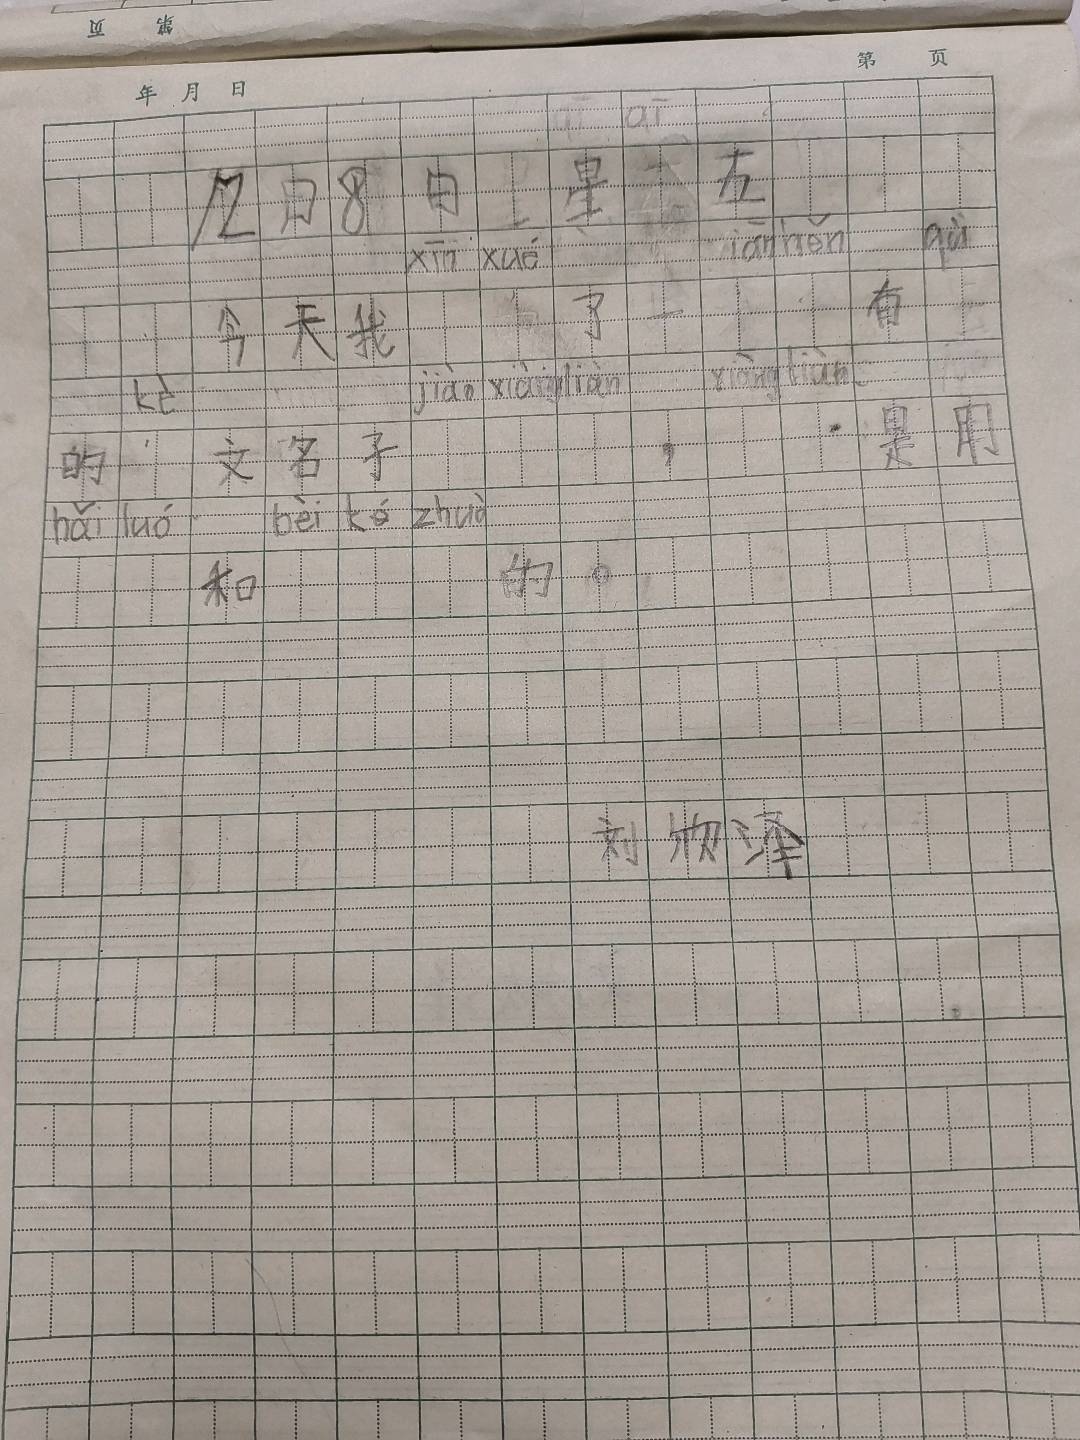 第 页
年 月 日 第 页
12日8日 星 五
xīn xué hěn qù
今天我 了一 有
kè jiào xiàng liàn xiàng liàn
的 文名子 , 是用
hǎi luó bèi ké zhuò
和 的。
刘 泽